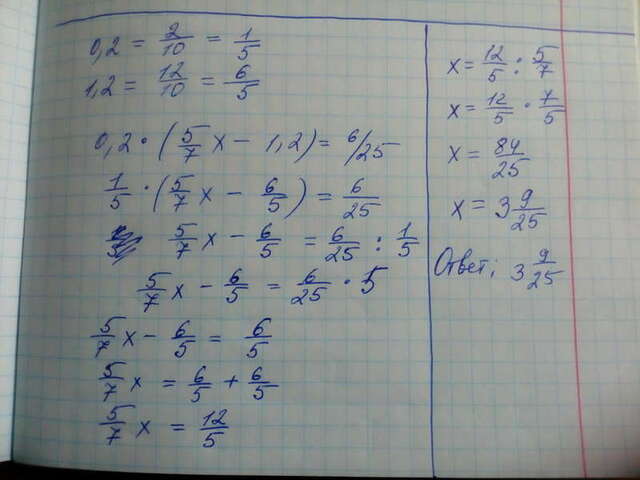 0,2 = 2/10 = 1/5
1,2 = 12/10 = 6/5
0,2 · (5/7 x - 1,2) = 6/25
1/5 · (5/7 x - 6/5) = 6/25
5/7 x - 6/5 = 6/25 : 1/5
5/7 x - 6/5 = 6/25 · 5
5/7 x - 6/5 = 6/5
5/7 x = 6/5 + 6/5
5/7 x = 12/5
x = 12/5 : 5/7
x = 12/5 · 7/5
x = 84/25
x = 3 9/25
Ответ: 3 9/25